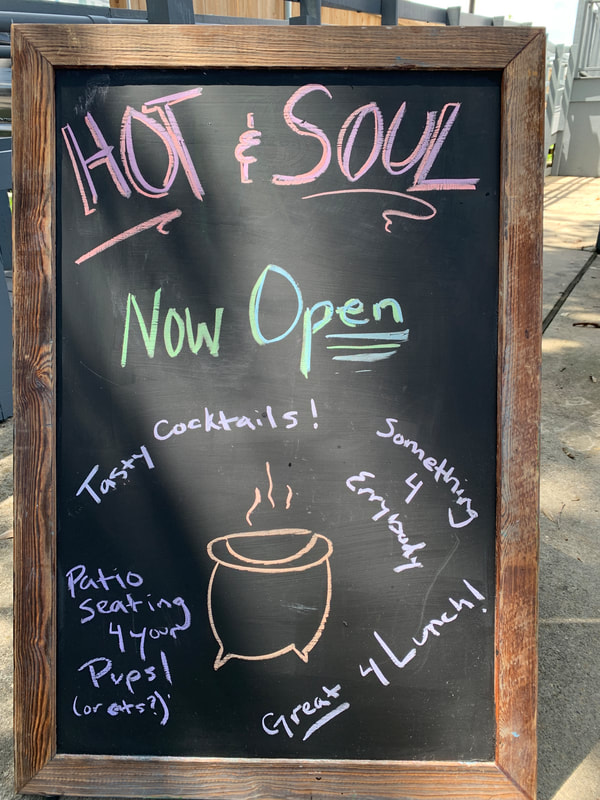 HOT & SOUL
Now Open
Tasty Cocktails!
Something
4
Errybody
Patio
seating
4 your
Pups!
(or cats?)
Great 4 Lunch!